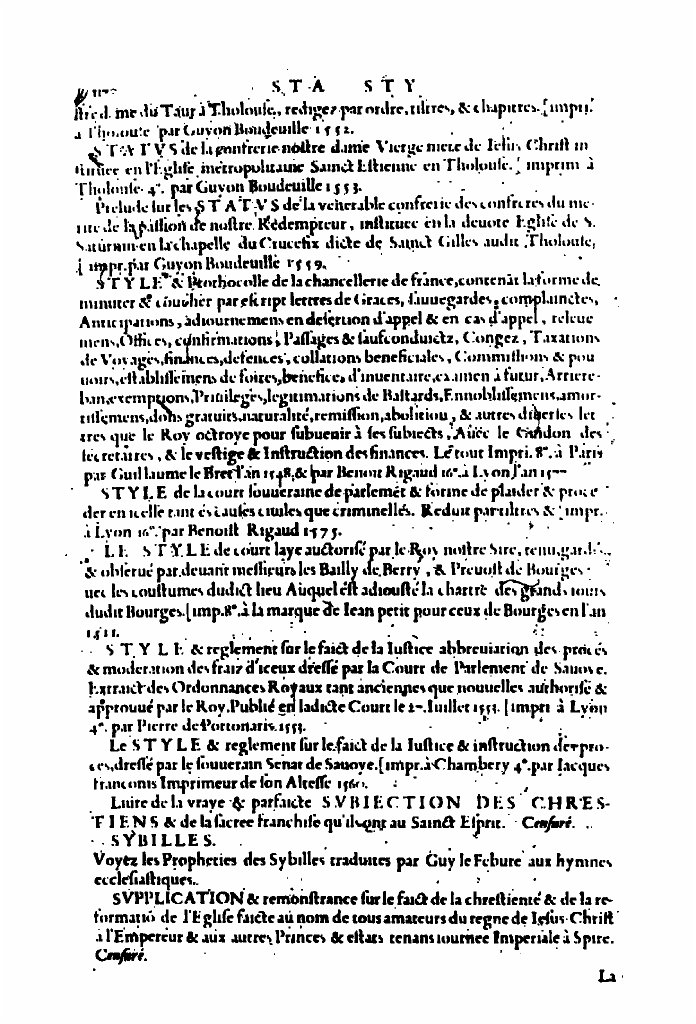 STA STY
stre d. me du Taur à Tholouse, redigez par ordre, tiltres, & chapitres. [impri.
a Tholouse par Guyon Boudeuille 1552.
STATVS de la confrerie nostre dame Vierge mere de Iesus Christ in
stituee en l'Eglise metropolitaine Sainct Estienne en Tholouse. [ imprim à
Tholouse 4°. par Guyon Boudeuille 1553.
Prelude sur les STATVS de la venerable confrerie des confreres du me-
rite de la passion de nostre Redempteur, instituee en la deuote Eglise de S.
Saturnin en la chapelle du Crucefix dicte de Sainct Gilles audit Tholouse,
[ impr. par Guyon Boudeuille 1559.
STYLE & Prothocolle de la chancellerie de france, contenāt la forme de
minuter & coucher par escript lettres de Graces, sauuegardes, complainctes,
Anticipations, adiournemens en desertion d'appel & en cas d'appel, relieue
mens, Offices, confirmations, Passages & saufconduictz, Congez, Taxations
de Voyages, finances, defences, collations beneficiales, Committions & pou
uoirs, establissemens de foires, benefice d'inuentaire, examen à futur, Arriere-
ban, exemptions, Priuileges, legitimations de Bastards, Ennoblissemens, amor-
tissemens, dons gratuits, naturalité, remission, abolition, & autres diuerses let
tres que le Roy octroye pour subuenir à ses subiects, Auec le Guidon des
secretaires, & le vestige & Instruction des finances. Le tout Impri. 8°. à Paris
par Guillaume le Bret l'an 1548. & par Benoit Rigaud 16°. a Lyon l'an
STYLE de la court souueraine de parlemēt & forme de plaider & proce
der en icelle tant és causes ciuiles que criminelles. Reduit par tiltres & [ impr.
à Lyon 16°. par Benoist Rigaud 1575.
LE STYLE de court laye auctorisé par le Roy nostre Sire, tenu, gardé,
& obserué par deuant messieurs les Bailly de Berry, & Preuost de Bourges
uec les coustumes dudict lieu Auquel est adiousté la chartre des grands iours
dudit Bourges. [imp. 8°. à la marque de Iean petit pour ceux de Bourges en l'an
STYLE & reglement sur le faict de la Iustice abbreuiation des procés
& moderation des fraiz d'iceux dressé par la Court de Parlement de Sauoye.
Extraict des Ordonnances Royaux tant anciennes que nouuelles authorisé &
approuué par le Roy. Publié en ladicte Court le Iuillet 1553. [impri à Lyon
4°. par Pierre de Portonaris. 1553.
Le STYLE & reglement sur le faict de la Iustice & instruction des pro-
ces, dressé par le souuerain Senat de Sauoye. [impr. à Chambery 4°. par Iacques
Franconis Imprimeur de son Altesse 1560.
Liure de la vraye & parfaicte SVBIECTION DES CHRES-
TIENS & de la sacree franchise qu'ils ont au Sainct Esprit. Censuré.
SYBILLES.
Voyez les Propheties des Sybilles traduites par Guy le Febure aux hymnes
ecclesiastiques.
SVPPLICATION & remonstrance sur le faict de la chrestienté & de la re-
formatiō de l'Eglise faicte au nom de tous amateurs du regne de Iesus-Christ
à l'Empereur & aux autres Princes & estats tenans iournee Imperiale à Spire.
Censuré.
La